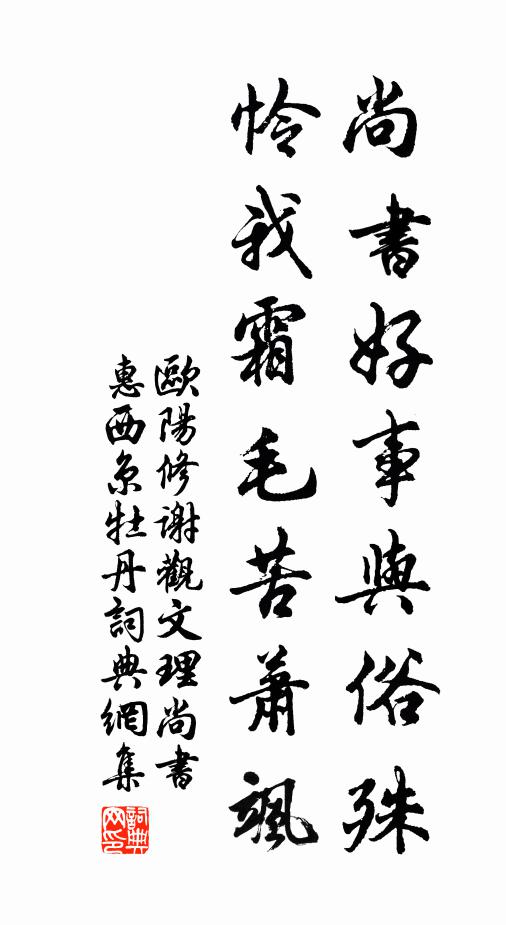 尚書好事與俗殊
怜我霜毛苦蕭颯
歐陽修謝觀文理尚書
惠西京牡丹詞典網集
詞典網印